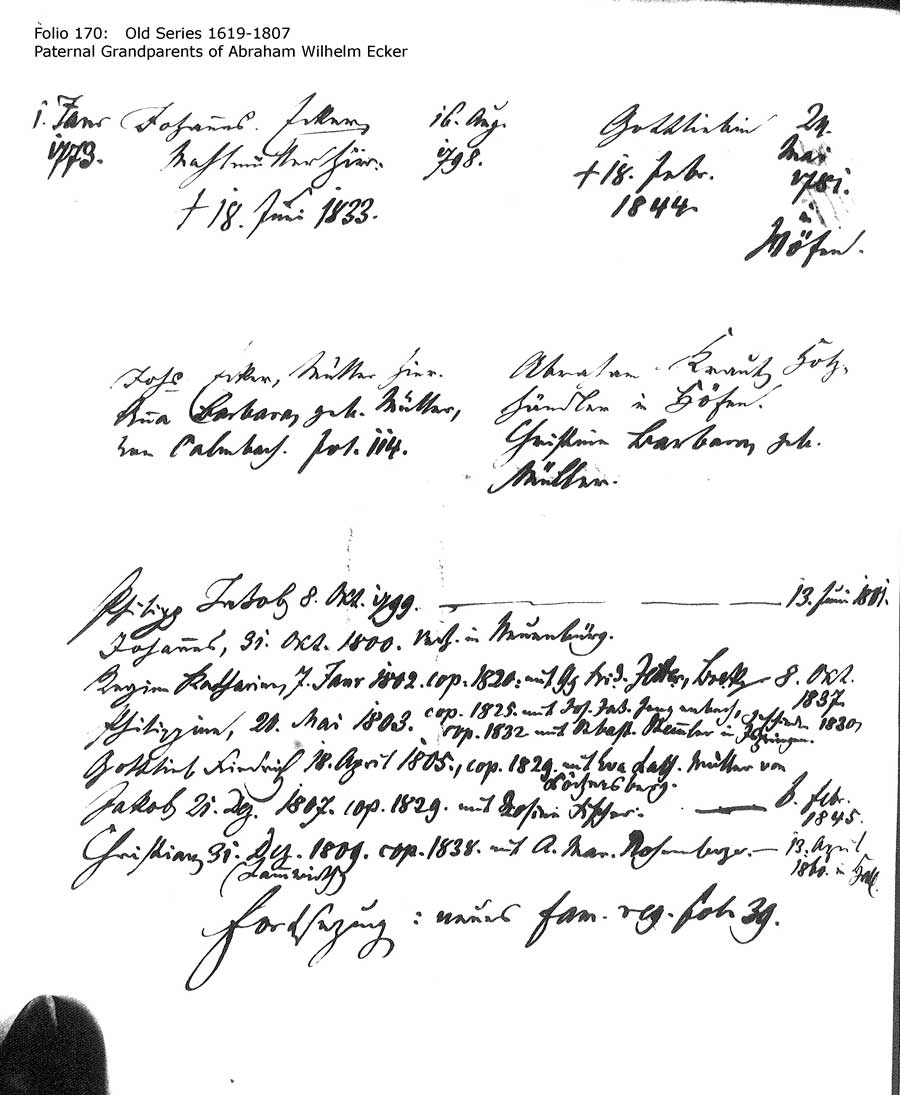 Folio 170: Old Series 1619-1807
Paternal Grandparents of Abraham Wilhelm Ecker
1. Janr Johannes Ecker, 16. Aug. Gottliebin 29.
1773. hier. 1798. † 18. Febr. Mai
† 18. Juni 1833. 1844. 1781.
in
Höfen.
Johs Ecker, Müller hier. Abraham Kraut, Holz-
Anna Barbara, geb. Müller, händler in Höfen.
von Calmbach. Fol. 114. Christina Barbara, geb.
Müller.
Philipp Jakob 8. Okt. 1799. 13. Juni 1801.
Johannes, 31. Okt. 1800. Verh. in Neuenbürg.
Regina Katharina, 7. Janr 1802. cop. 1820. mit Frid. 8. Okt.
1837.
Philippina, 20. Mai 1803. cop. 1825. mit Joh. Jak. geschieden 1830,
cop. 1832 mit Sebast. in
Gottlieb Friedrich 18. April 1805., cop. 1829. mit Eva Kath. Müller von
Jakob 21. Dez. 1807. cop. 1829. mit Rosina Fischer. 6. Febr.
1845.
Christian, 31. Dez. 1809. cop. 1838. mit A. Mar. Rosenberger. 13. April
(Lammwirth) 1860. in
Fortsezung: neues Fam. reg. Fol. 39.